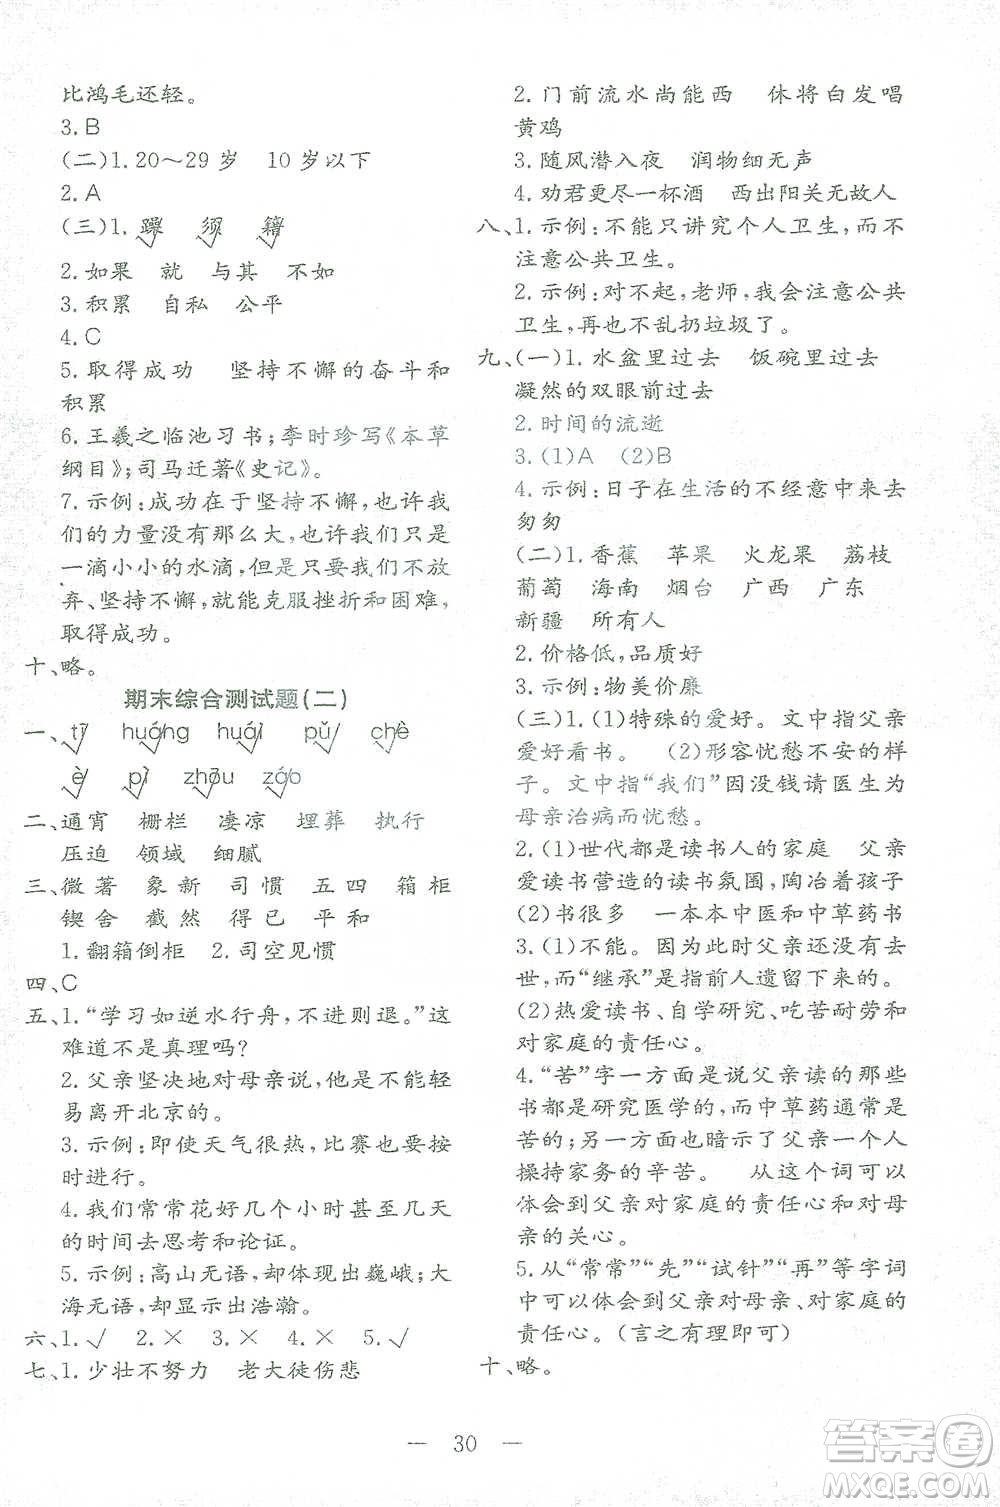 比鸿毛还轻。
3. B
(二)1. 20～29 岁　10 岁以下
2. A
(三)1. 躁　须　籍
2. 如果　就　与其　不如
3. 积累　自私　公平
4. C
5. 取得成功　坚持不懈的奋斗和
积累
6. 王羲之临池习书；李时珍写《本草
纲目》；司马迁著《史记》。
7. 示例：成功在于坚持不懈，也许我
们的力量没有那么大，也许我们只是
一滴小小的水滴，但是，只要我们不放
弃、坚持不懈，就能克服挫折和困难，
取得成功。
十、略。
期末综合测试题(二)
一、tī　huáng　huái　pǔ　chè
è　pì　zhōu　záo
二、通宵　栅栏　凄凉　埋葬　执行
压迫　领域　细腻
三、微 著　象 新　司 惯　五 四　箱 柜
锲 舍　截 然　得 已　平 和
1. 翻箱倒柜　2. 司空见惯
四、C
五、1. “学习如逆水行舟，不进则退。”这
难道不是真理吗？
2. 父亲坚决地对母亲说，他是不能轻
易离开北京的。
3. 示例：即使天气很热，比赛也要按
时进行。
4. 我们常常花好几个小时甚至几天
的时间去思考和论证。
5. 示例：高山无语，却体现出巍峨；大
海无语，却显示出浩瀚。
六、1. √　2. ×　3. ×　4. ×　5. √
七、1. 少壮不努力　老大徒伤悲
2. 门前流水尚能西　休将白发唱
黄鸡
3. 随风潜入夜　润物细无声
4. 劝君更尽一杯酒　西出阳关无故人
八、1. 示例：不能只讲究个人卫生，而不
注意公共卫生。
2. 示例：对不起，老师，我会注意公共
卫生，再也不乱扔垃圾了。
九、(一)1. 水盆里过去　饭碗里过去
凝然的双眼前过去
2. 时间的流逝
3. (1)A　(2)B
4. 示例：日子在生活的不经意中来去
匆匆
(二)1. 香蕉　苹果　火龙果　荔枝
葡萄　海南　烟台　广西　广东
新疆　所有人
2. 价格低，品质好
3. 示例：物美价廉
(三)1. (1)特殊的爱好。文中指父亲
爱好看书。　(2)形容忧愁不安的样
子。文中指“我们”因没钱请医生为
母亲治病而忧愁。
2. (1)世代都是读书人的家庭　父亲
爱读书营造的读书氛围，陶冶着孩子
(2)书很多　一本本中医和中草药书
3. (1)不能。因为此时父亲还没有去
世，而“继承”是指前人遗留下来的。
(2)热爱读书、自学研究、吃苦耐劳和
对家庭的责任心。
4. “苦”字一方面是说父亲读的那些
书都是研究医学的，而中草药通常是
苦的；另一方面也暗示了父亲一个人
操持家务的辛苦。　从这个词可以
体会到父亲对家庭的责任心和对母
亲的关心。
5. 从“常常”“先”“试针”“再”等字词
中可以体会到父亲对母亲、对家庭的
责任心。(言之有理即可)
十、略。
— 30 —
答案圈
MXQE.COM